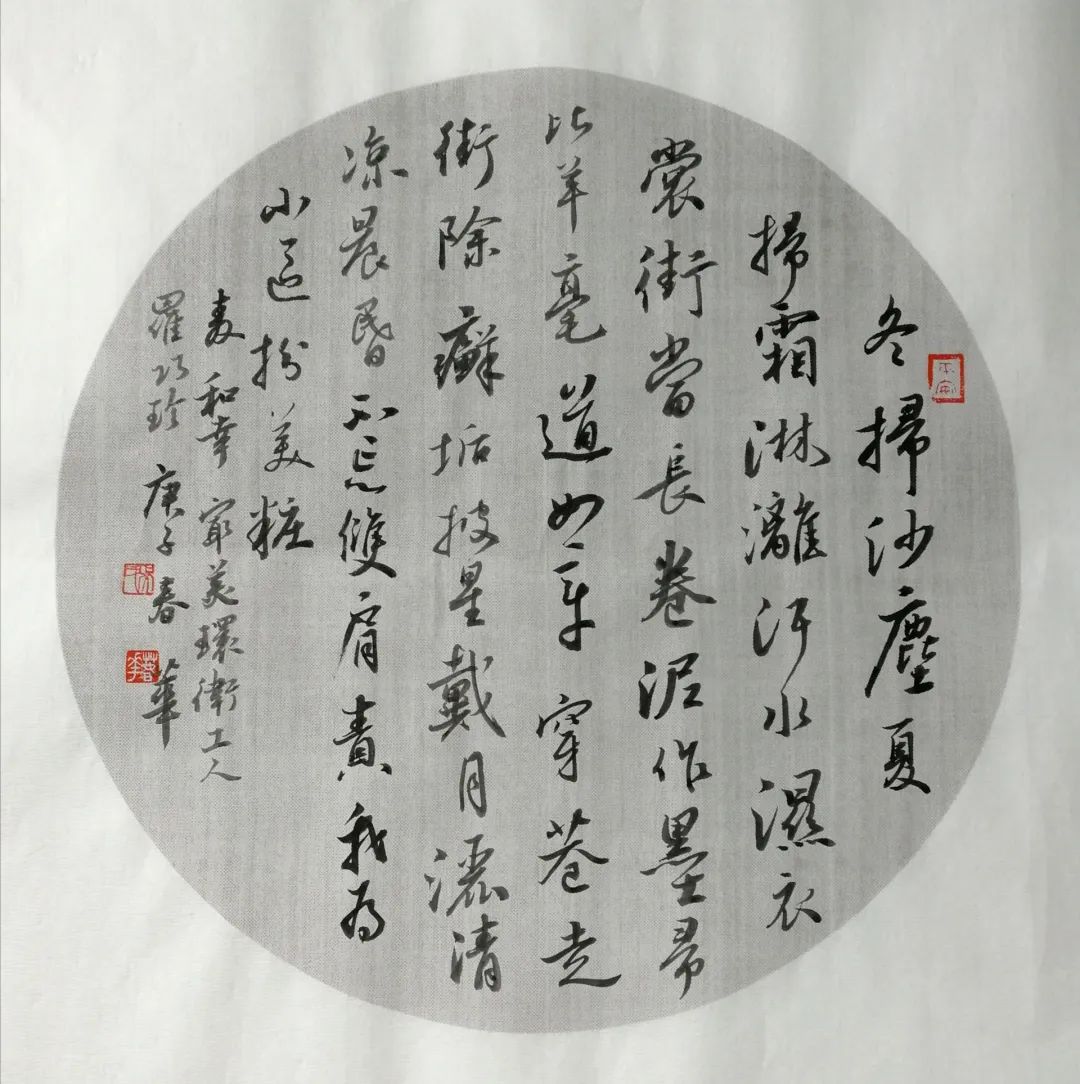 冬掃沙塵夏
掃霜淋灕汗水濕衣
裳街當長卷泥作墨帚
比羊毫道如穿巷走
街除癬垢披星戴月灑清
凉晨昏不忘雙肩責我為
小邑扮美粧
麦和幸美環衛工人
羅巧珍 庚子春華